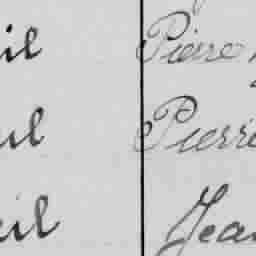 il Pierre
ul Pierre
eil Jean